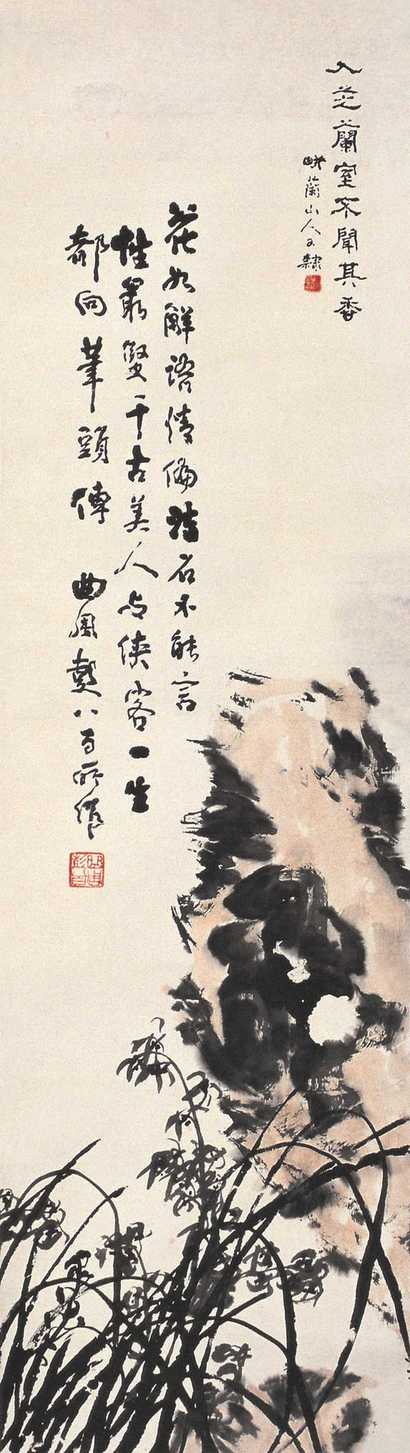 入芝蘭室不聞其香
畊蘭山人隸
花如解語情偏石不能言
性最堅千古美人与俠客一生
都向筆頭傳 曲八百所作